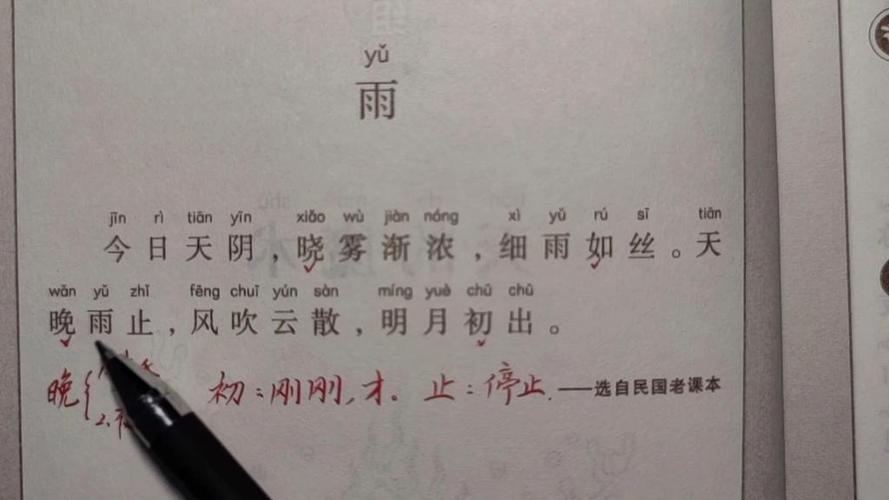 yǔ
雨
jīn rì tiān yīn xiǎo wù jiàn nóng xì yǔ rú sī tiān
今日天阴，晓雾渐浓，细雨如丝。天
wǎn yǔ zhǐ fēng chuī yún sàn míng yuè chū chū
晚雨止，风吹云散，明月初出。
晚 初：刚刚，才。 止：停止. ——选自民国老课本